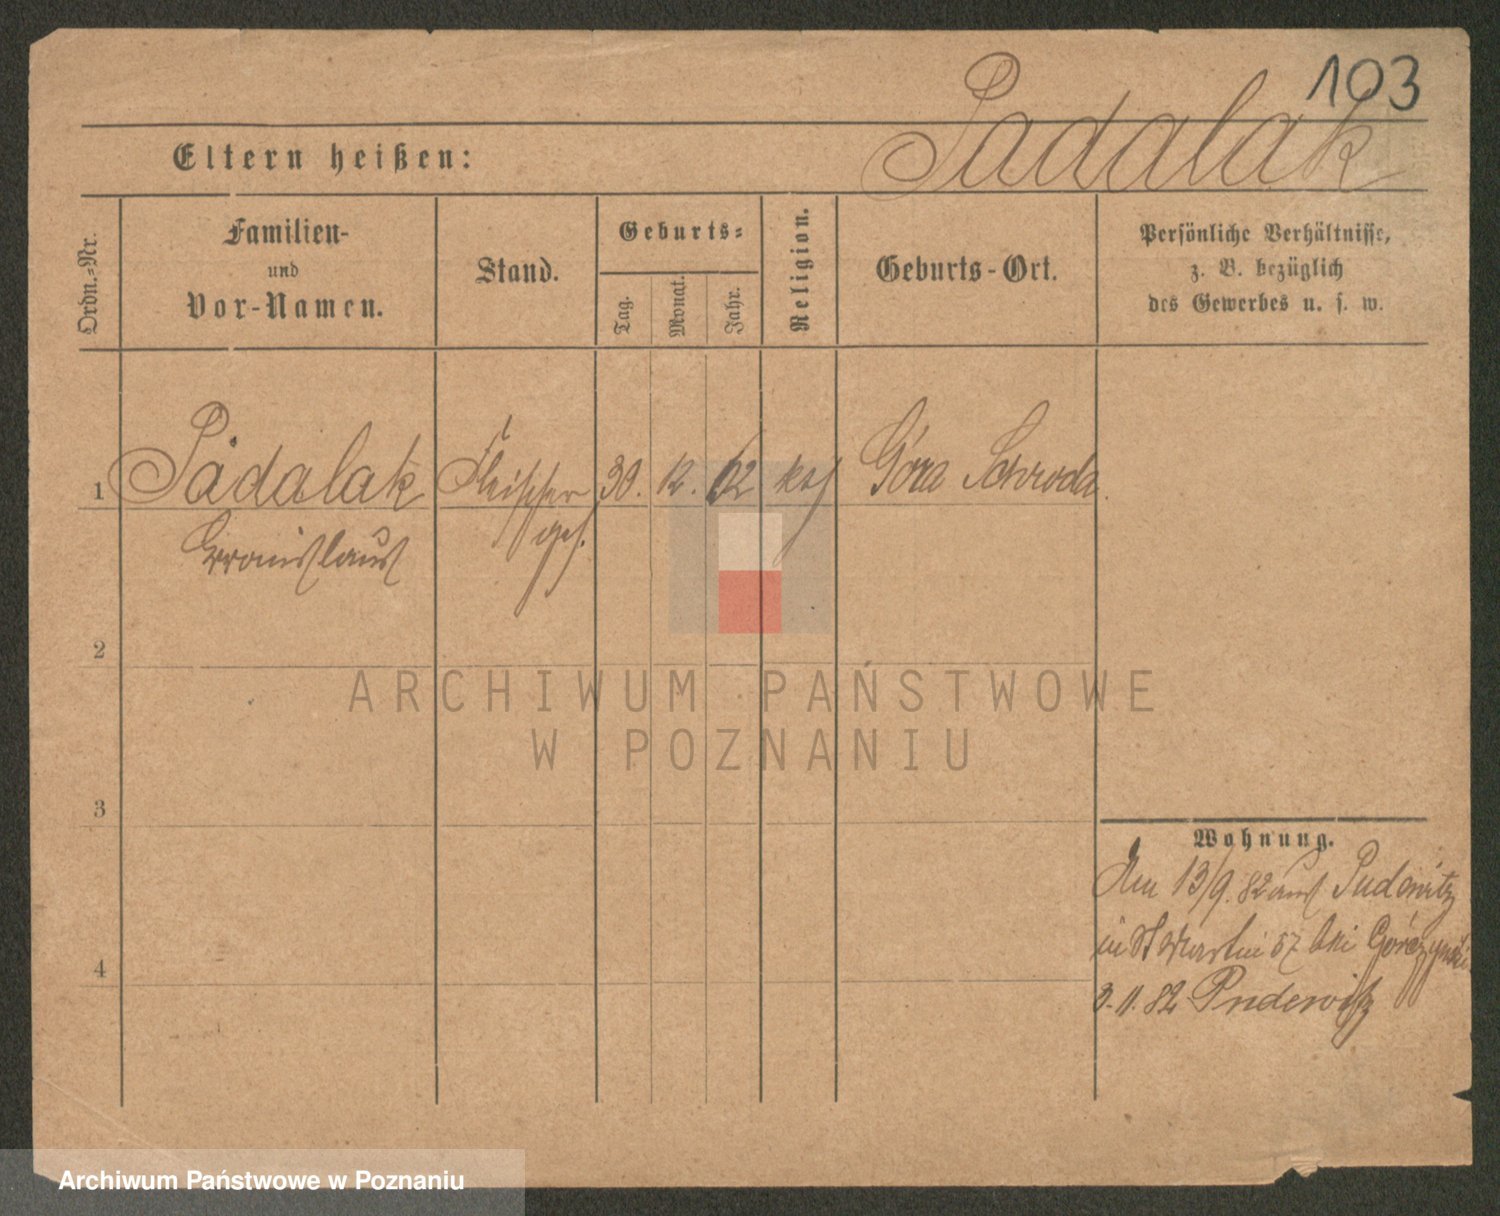 103
Padalak
Eltern heißen:
Ordn.-Nr.
Familien-
und
Vor-Namen.
Stand.
Geburts-
Tag.
Monat.
Jahr.
Religion.
Geburts-Ort.
Persönliche Verhältnisse,
z. B. bezüglich
des Gewerbes u. s. w.
1 Padalak Fleischer 30. 12. 62 kath Góra Schroda.
Bronislaus ges.
2
ARCHIWUM PAŃSTWOWE
W POZNANIU
3
Wohnung.
Am 13/9. 82 aus Pudewitz
in St Martin 57 bei Górczynski
3. 11. 82 Pudewitz
4
Archiwum Państwowe w Poznaniu